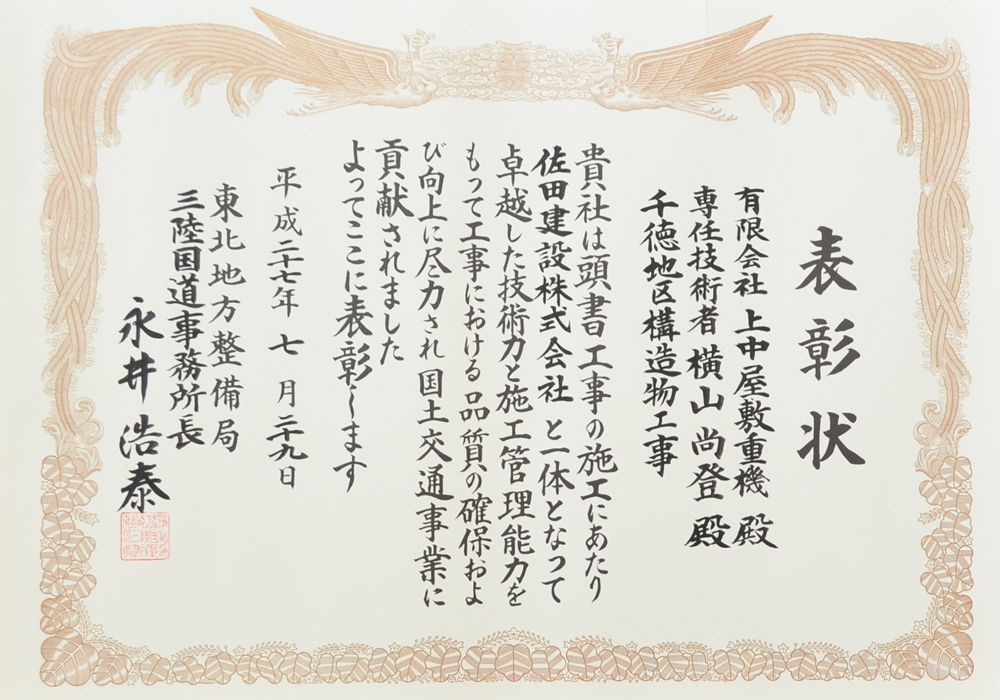 表彰状
有限会社 上中屋敷重機 殿
専任技術者 横山 尚登 殿
千徳地区構造物工事
貴社は頭書工事の施工にあたり
佐田建設株式会社 と一体となって
卓越した技術力と施工管理能力を
もって工事における品質の確保およ
び向上に尽力され国土交通事業に
貢献されました
よってここに表彰します
平成二十七年 七 月二十九日
東北地方整備局
三陸国道事務所長
永井 浩泰